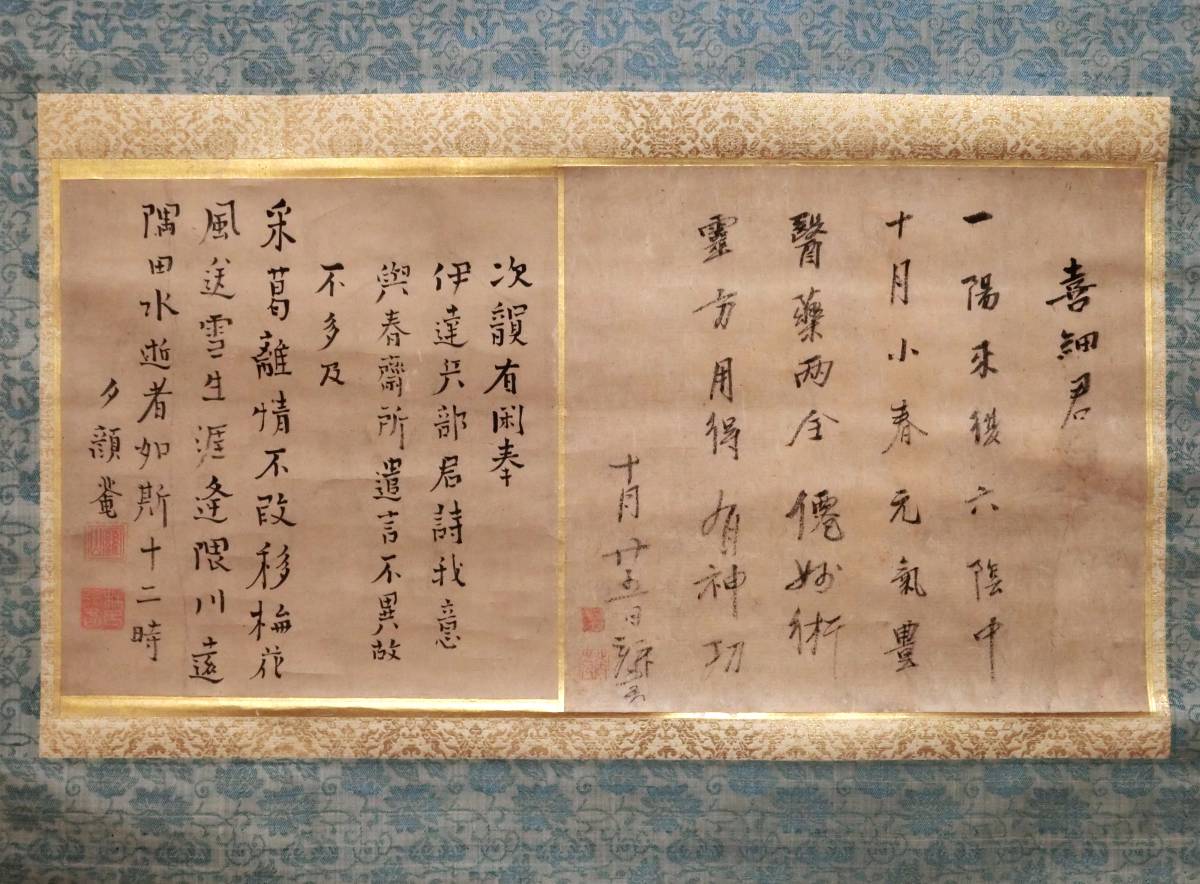 喜細君
一陽来復六陰中
十月小春元氣豊
醫藥兩全僊妙術
靈方用得有神功
十月廿五日
次韻有閑奉
伊達兵部君詩我意
與春齋所遣言不異故
不多及
采葛離情不改移梅花
風送雪生涯逢隈川遠
隅田水逝者如斯十二時
夕顔菴